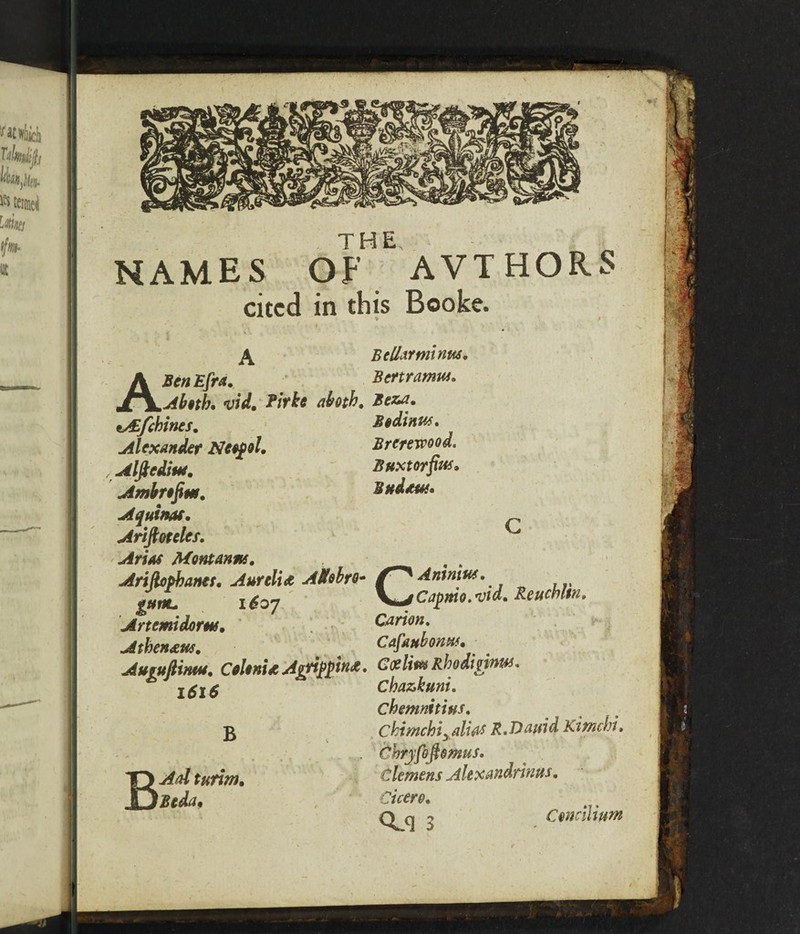 r at which
Talmudists
termed
Latines
THE
NAMES OF AVTHORS
cited in this Booke.
A
ABen Eſra.
Aboth. vid. Pirke aboth.
Æſchines.
Alexander Neopol.
Alſtedius.
Ambroſius.
Aquinas.
Ariſtoteles.
Arias Montanus.
Ariſtophanes. Aureliæ Allobro-
gum. 1607
Artemidorus.
Athenæus.
Auguſtinus. Coloniæ Agrippinæ.
1616
B
BAal turim.
Beda.
Bellarminus.
Bertramus.
Beza.
Bodinus.
Brerewood.
Buxtorfius.
Budæus.
C
CAninius.
Capnio. vid. Reuchlin.
Carion.
Caſaubonus.
Cœlius Rhodiginus.
Chazkuni.
Chemnitius.
Chimchi, alias R. Dauid Kimchi.
Chryſoſtomus.
Clemens Alexandrinus.
Cicero.
Qq 3
Concilium